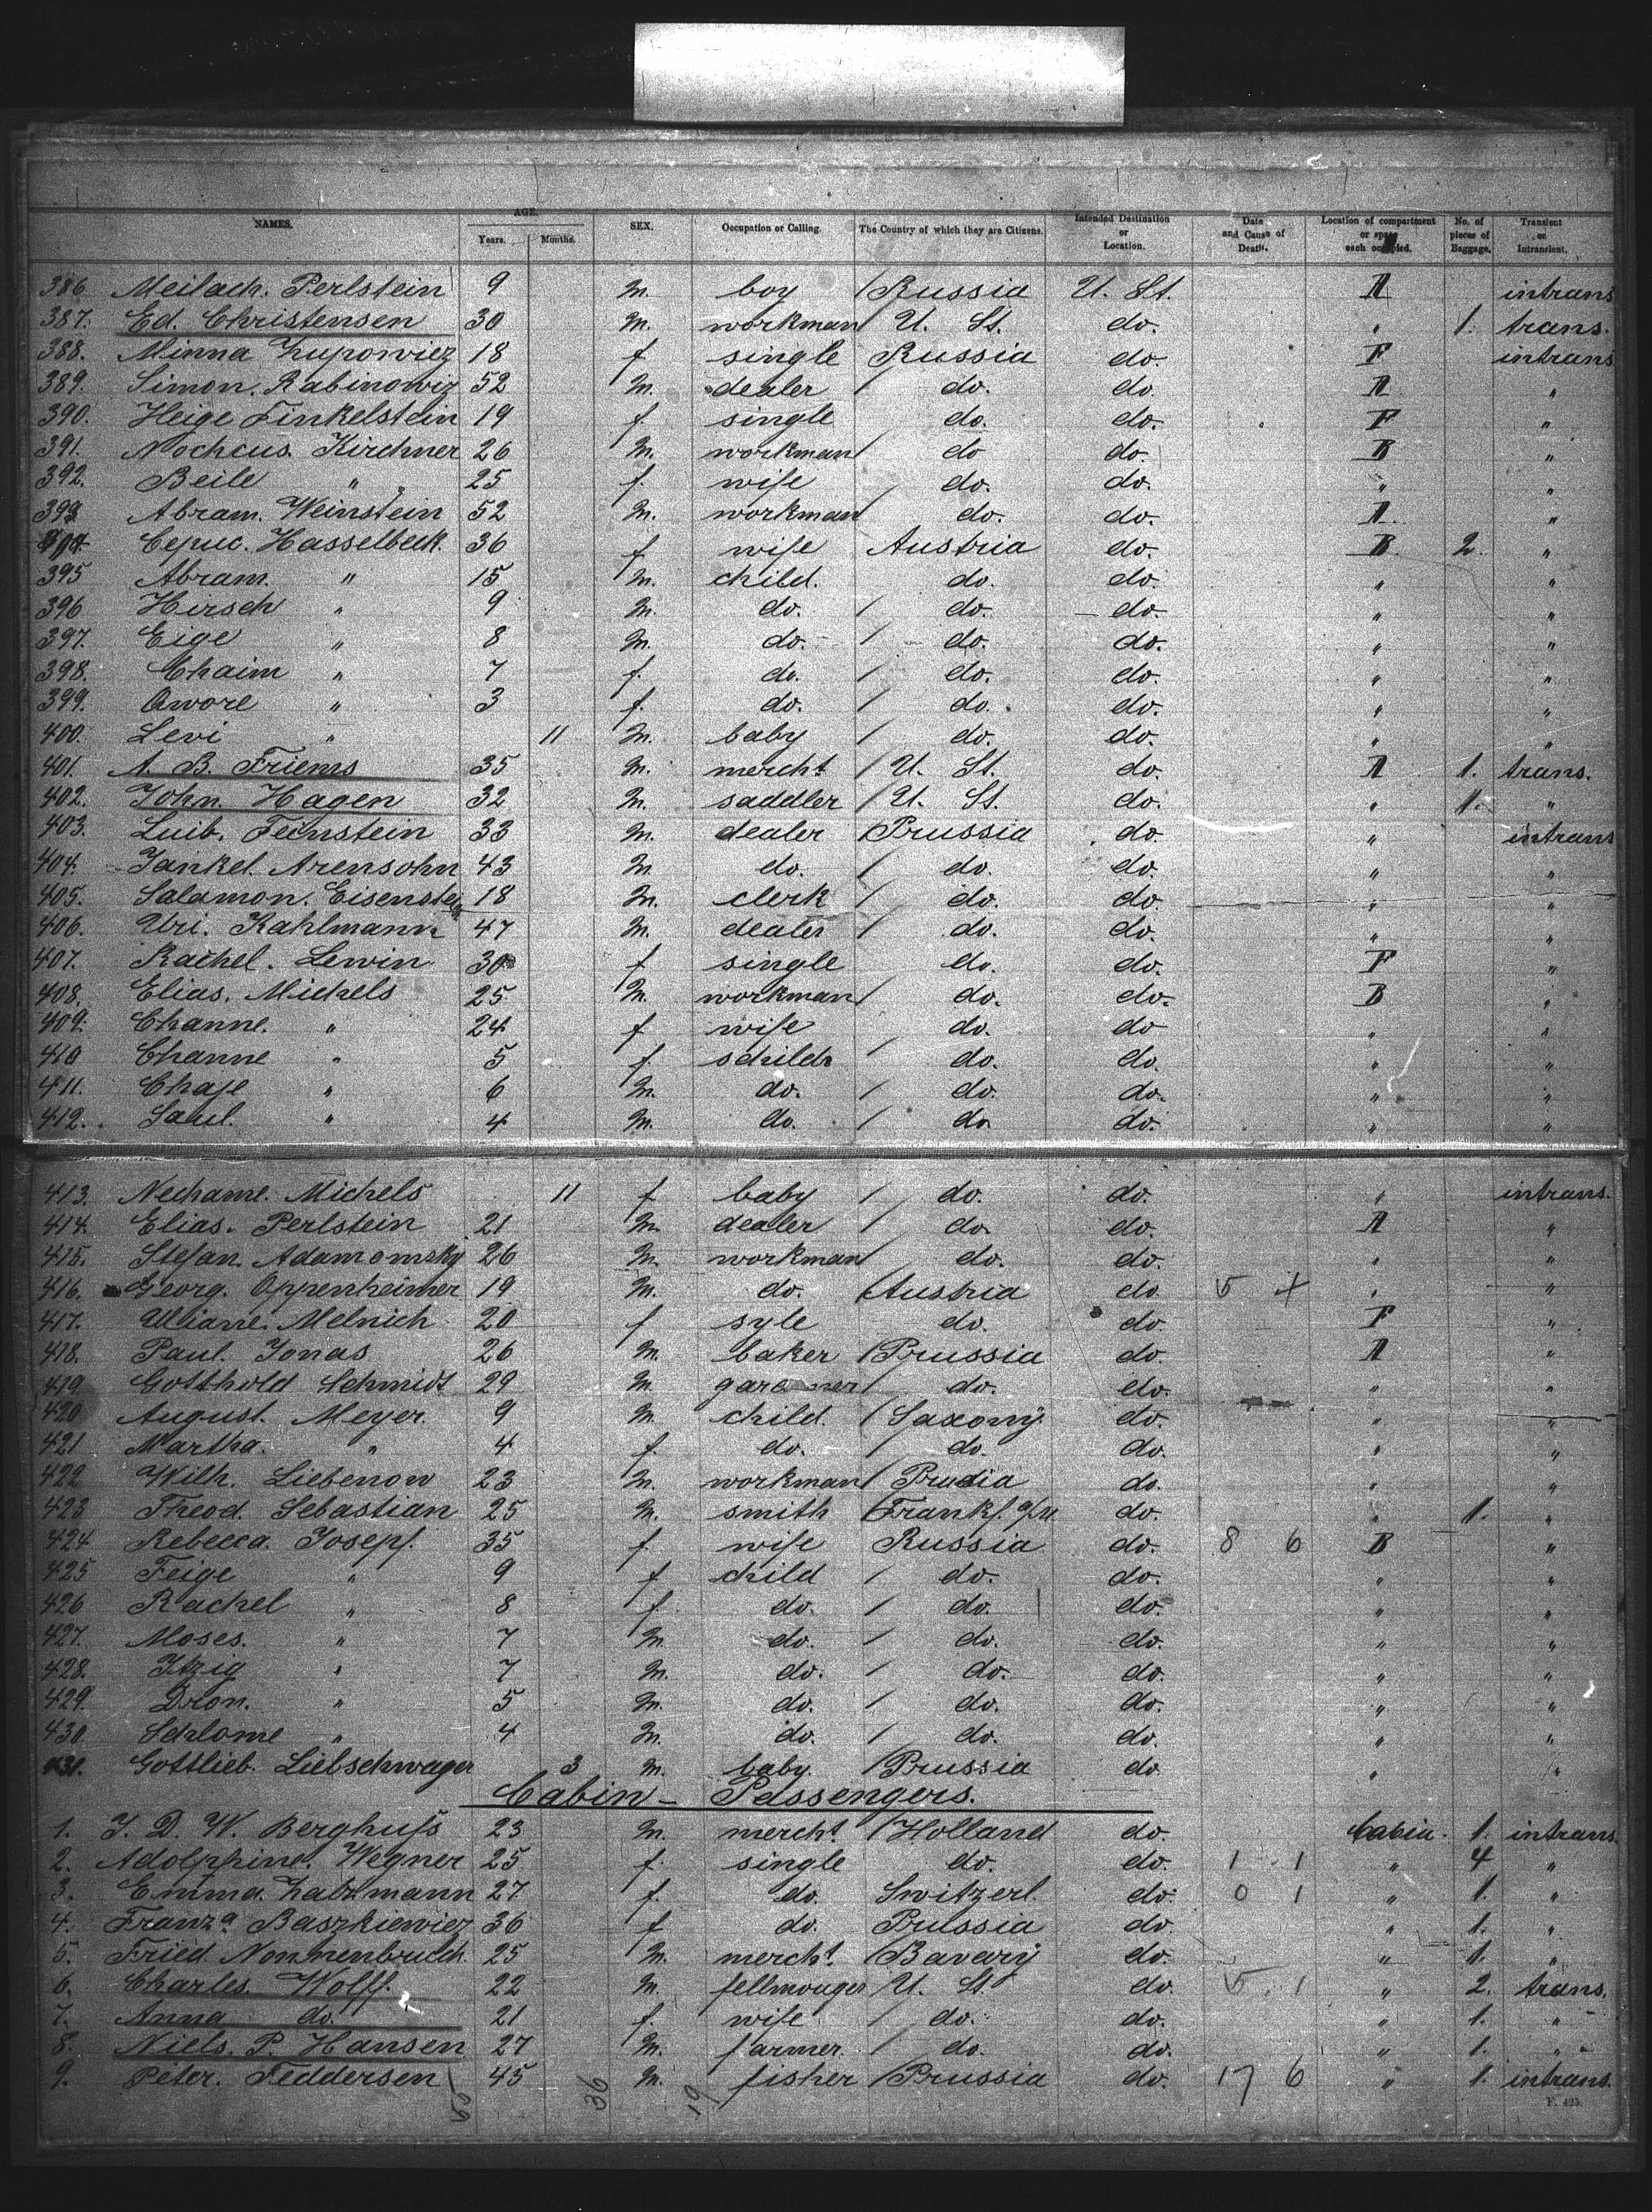 NAMES. AGE. SEX. Occupation or Calling. The Country of which they are Citizens. Intended Destination or Location. Date and Cause of Death. Location of compartment or space each occupied. No. of pieces of Baggage. Transient or Intransient.
Years. Months.
386 Meilach. Perlstein 9 m. boy Russia U. St. A intrans
387. Ed. Christensen 30 m. workman U. St. do. " 1. trans.
388. Minna Zupowiez 18 f single Russia do. F intrans
389. Simon. Rabinowiz 52 m. dealer do. do. A "
390. Heige Finkelstein 19 f. single do. do. F "
391. Nochcus. Kirchner 26 m. workman do do. B "
392. Beile " 25 f. wife do. do. " "
393 Abram. Weinstein 52 m. workman do. do. A. "
394. Cepuc. Hasselbeck. 36 f wife Austria do. B. 2. "
395 Abram. " 15 m. child. do. do. " "
396 Hirsch " 9 m. do. do. do. " "
397. Eige " 8 m. do. do. do. " "
398. Chaim " 7 f. do. do. do. " "
399. Awore " 3 f. do. do. do. " "
400. Levi " 11 m. baby do. do. " "
401. A. B. Friems 35 m. mercht U. St. do. A 1. trans.
402. John. Hagen 32 m. saddler U. St. do. " 1. "
403. Luib. Feinstein 33 m. dealer Prussia do. " intrans
404. Jankel. Arensohn 43 m. do. do. do. " "
405. Salamon. Eisenstein 18 m. clerk do. do. " "
406. Uri. Kahlmann 47 m. dealer do. do. " "
407. Rachel. Lewin 30 f single do. do. F "
408. Elias. Michels 25 m. workman do. do. B "
409. Channe. " 24 f wife do. do " "
410 Channe " 5 f schildr do. do. " "
411. Chaje " 6 m. do. do. do. " "
412. Saul. " 4 m. do. do do. " "
413. Nechame. Michels 11 f baby do. do. " intrans.
414. Elias. Perlstein 21 m. dealer do. do. A "
415. Stefan. Adamomsky 26 m. workman do. do. " "
416. Georg. Oppenheimer 19 m. do. Austria do 5 + " "
417. Melnich 20 f syle do. do. F "
418. Paul. Jonas 26 m. baker Prussia do. A "
419 Gotthold Schmidt 29 m. gardener do. do. " "
420 August. Meyer. 9 m. child. Saxony. do. " "
421 Martha. " 4 f. do. do. do. " "
422 Wilh. Liebenow 23 m. workman Prussia do. " "
423 Theod. Sebastian 25 m. smith Frankf. a/M do. " 1. "
424 Rebecca. Josepf. 35 f. wife Russia do. 8 6 B "
425 Feige " 9 f child do. do. " "
426 Rachel " 8 f. do. do. do. " "
427. Moses. " 7 m. do. do. do. " "
428. Itzig " 7 m. do. do. do. " "
429. Dron. " 5 m. do. do. do. " "
430. Schlome " 4 m. do. do. do. " "
431. Gottlieb. Liebschwager 3 m. baby. Prussia do " "
Cabin - Passengers.
1. J. D. W. Berghuss 23 m. mercht. Holland do. Cabin. 1. intrans.
2. Adolphine. Wegner 25 f. single do. do. 1 1 " 4 "
3. Emma. Zabrmann 27. f. do. Switzerl. do. 0 1 " 1. "
4. Franza Baszkiewicz 36 f do. Prussia do " 1. "
5. Fried. Nonnenbruch. 25 m. mercht. Bavary do. " 1. "
6. Charles. Wolff. 22 m. fellmonger U. St. do. 5 1 " 2. trans.
7. Anna do. 21 f. wife do. do. " 1. "
8. Niels. P. Hansen 27 m. farmer. do. do. " 1. "
9. Peter. Feddersen 45 m. fisher Prussia do. 17 6 " 1. intrans.
36 19
F. 425.